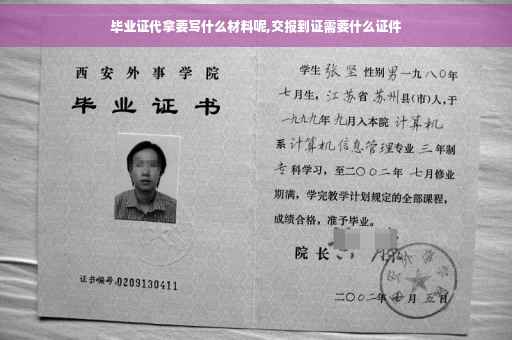 毕业证代拿要写什么材料呢,交报到证需要什么证件
西安外事学院
毕业证书
证书编号:0209130411
学生 张坚 性别男 一九八〇年
七月生，江苏省 苏州县(市)人，于
一九九九年 九月入本院 计算机
系 计算机信息管理专业 三年制
专科学习，至二〇〇二年 七月修业
期满，学完教学计划规定的全部课程，
成绩合格，准予毕业。
院长
二〇〇二年 月五日